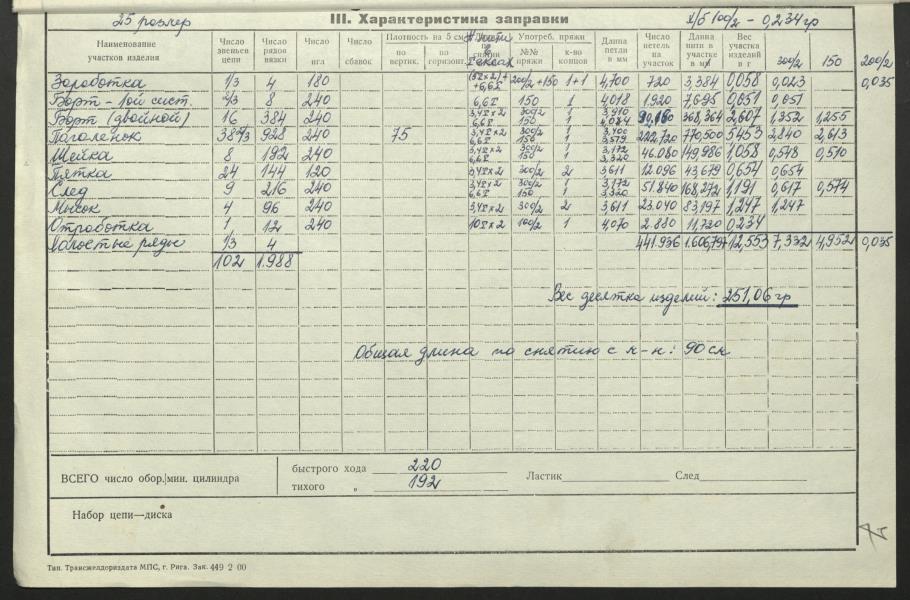 25 размер III. Характеристика заправки Х/б 100/2 - 0,234 гр
Наименование участков изделия Число звеньев цепи Число рядов вязки Число игл Число сбавок Плотность на 5 см по вертик. по горизонт. Употреб. пряжи №№ пряжи к-во концов Длина петли в мм Число петель на участок Длина нити в участке в м Вес участка изделия в г 300/2 150 200/2
Заработка 1/3 4 180 200/2 +150 1+1 4,700 720 3,384 0,058 0,023 0,035
Борт - 1ой сист. 2/3 8 240 6,6 I 150 1 4,018 1.920 7,695 0,051 0,051
Борт (двойной) 16 384 240 3,4 I x 2 300/2 1 3,910 368,364 2,607 1,352 1,255
6,6 I 150 1 4,084
Паголенок 38 2/3 928 240 75 3,4 I x 2 300/2 1 3,400 222,720 770,500 5,453 2,840 2,613
6,6 I 150 1 3,579
Шейка 8 192 240 3,4 I x 2 300/2 1 3,172 46.080 149,986 1,058 0,548 0,510
6,6 I 150 1 3,320
Пятка 24 144 120 3,4 I x 2 300/2 2 3,611 12.096 43,679 0,654 0,654
След 9 216 240 3,4 I x 2 300/2 1 3,172 51.840 168,272 1,191 0,617 0,574
6,6 I 150 1 3,320
Мысок 4 96 240 3,4 I x 2 300/2 2 3,611 23.040 83,197 1,247 1,247
Отработка 1 12 240 10 I x 2 100/2 2 4,070 2.880 11,720 0,234
Холостые ряды 1/3 4 441.936 1.606,797 12,553 7,332 4,952 0,035
102 1.988
Вес десятка изделий: 251,06 гр
Общая длина по снятию с к-н: 90 см
ВСЕГО число обор./мин. цилиндра быстрого хода 220
тихого „ 192 Ластик След
Набор цепи—диска
Тип. Трансжелдориздата МПС, г. Рига. Зак. 449 2 00